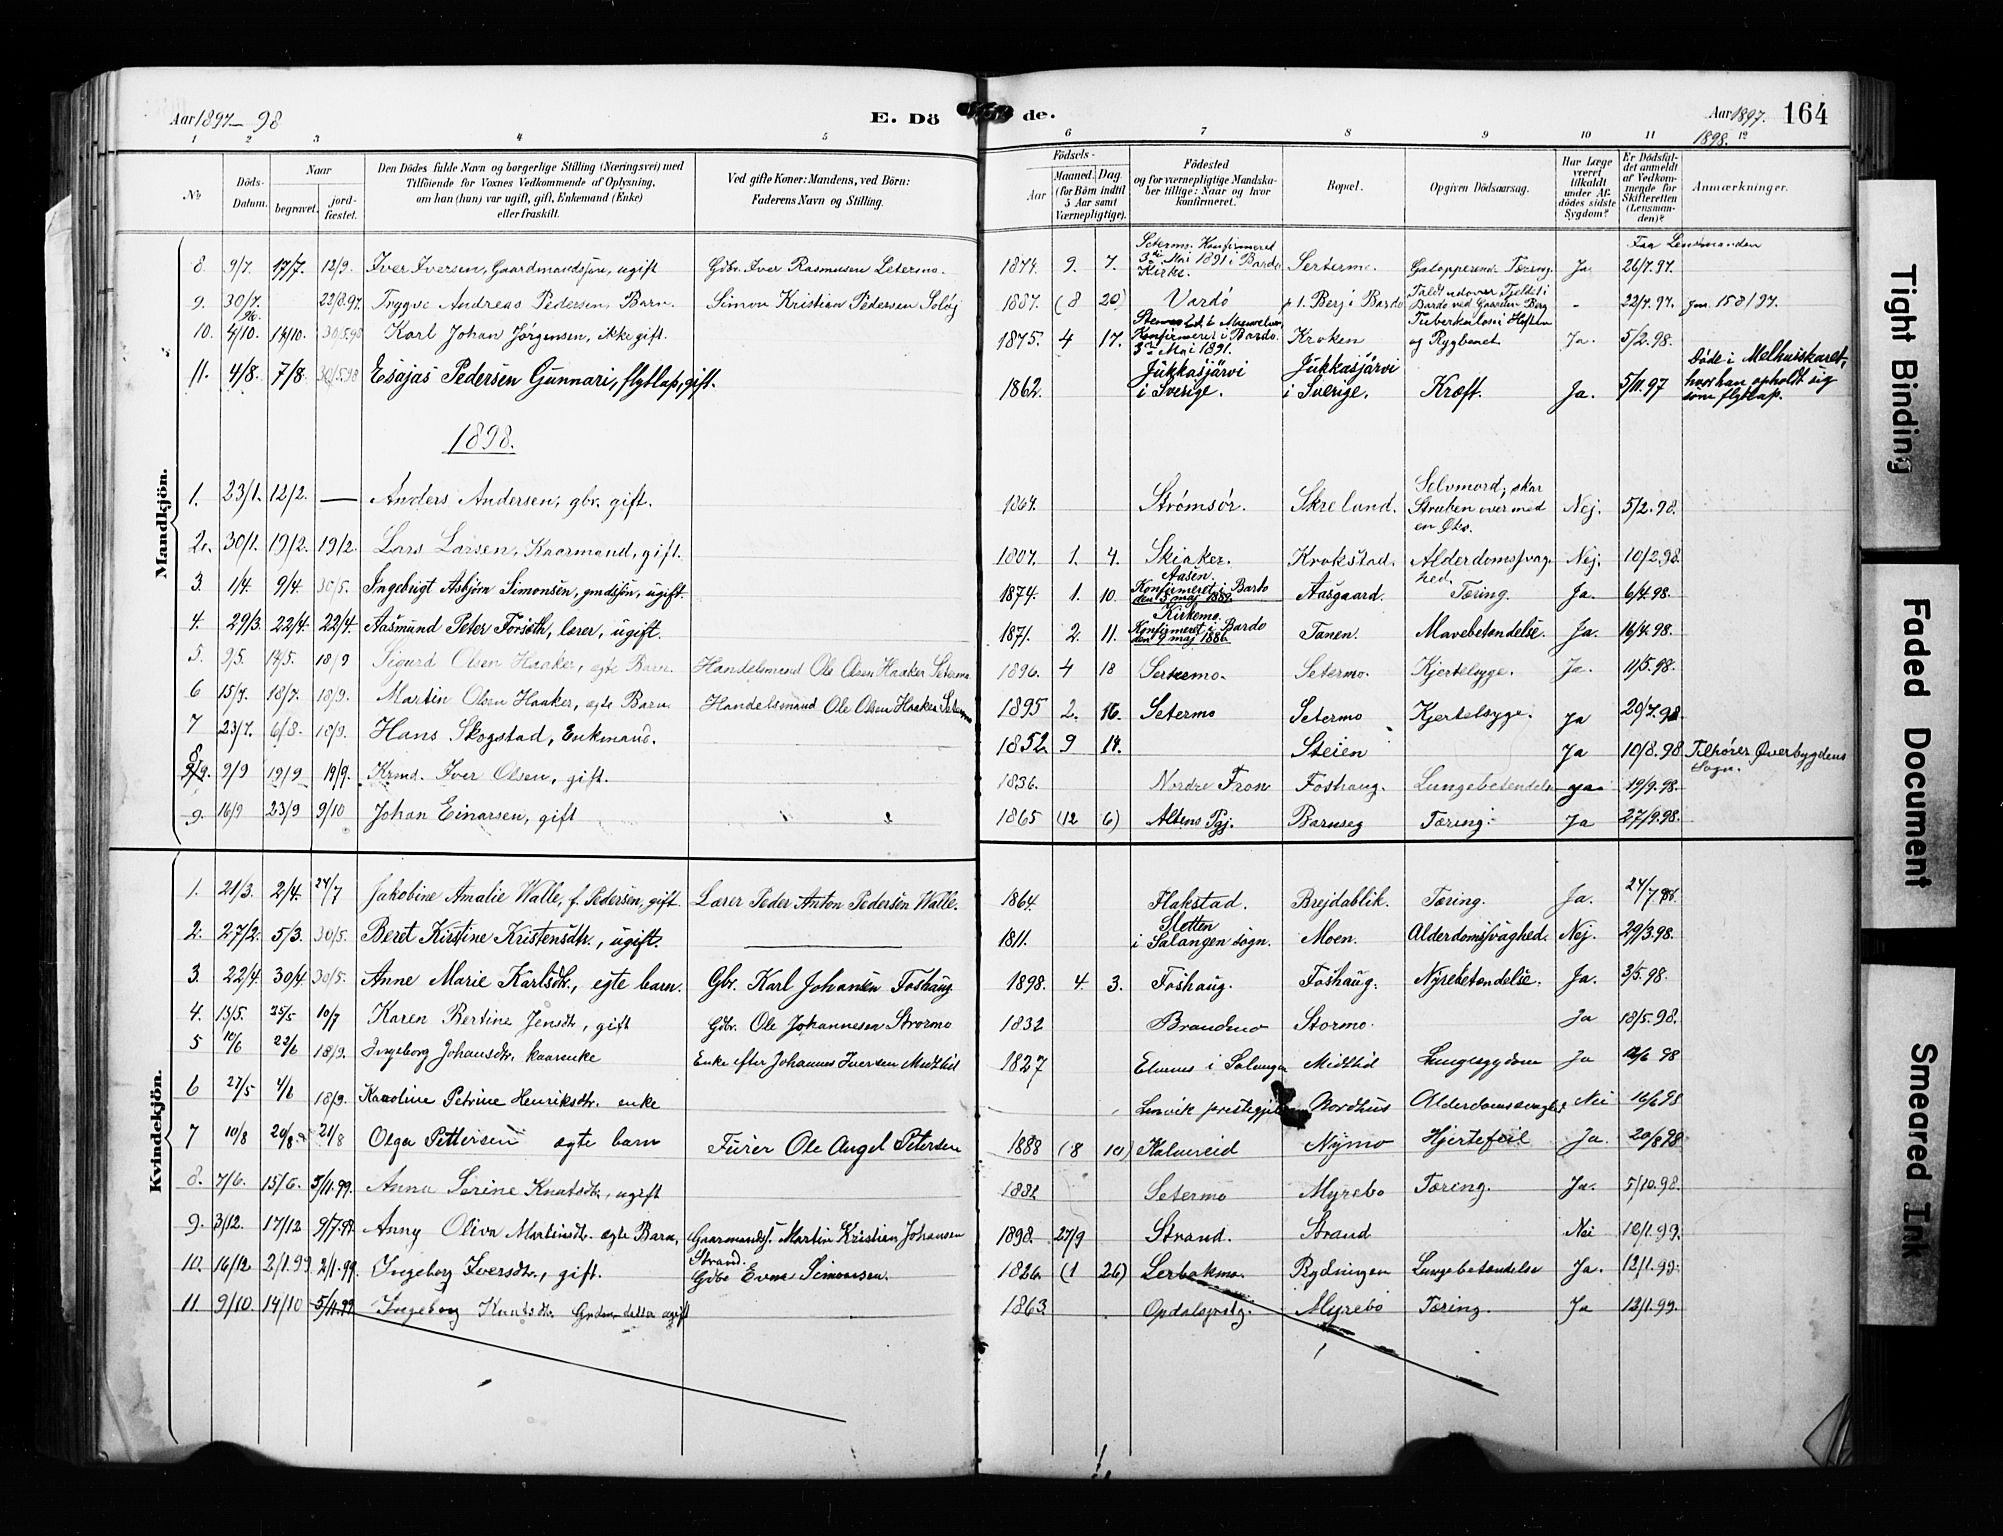 Aar 1897-98
E. Dö de.
Aar 1897. 164
1898.
1 2 3 4 5 6 7 8 9 10 11 12
No
Döds-Datum.
Naar
begravet.
jord-fæstet.
Den Dödes fulde Navn og borgerlige Stilling (Næringsvei) med
Tilföiende for Voxnes Vedkommende af Oplysning,
om han (hun) var ugift, gift, Enkemand (Enke)
eller fraskilt.
Ved gifte Koner: Mandens, ved Börn:
Faderens Navn og Stilling.
Födsels-
Aar
Maaned. Dag
(for Börn indtil
5 Aar samt
Værnepligtige).
Födested
og for værnepligtige Mandska-
ber tillige: Naar og hvor
konfirmeret.
Bopæl.
Opgiven Dödsaarsag.
Har Læge
været
tilkaldt
under Af-
dödes sidste
Sygdom?
Er Dödsfal-
det anmeldt
af Vedkom-
mende for
Skifteretten
(Lensman-
den)?
Anmærkninger.
Mandkjön.
8 9/7. 17/7. 12/9. Iver Iversen, Gaardmandssøn, ugift Gbr. Iver Rasmusen Setermo. 1874. 9. 7. Setermo. Konfirmered 3die Mai 1891 i Bardo Kirke. Setermo. Galopperende Tæring. Ja 26/7.97. Fra Lensmanden
9. 30/7. 22/8.97. Trygve Andreas Pedersen, Barn. Simon Kristian Pedersen 1887. (8 20) Vardö p.t. Berg i Bardo Faldt udover Fjeldet i Bardo ved Gaarden Berg - 22/7.97.
10. 4/10. 14/10. 30/5.98 Karl Johan Jørgensen, ikke gift. 1875. 4 17. Konfirmeret i Bardo 3die Mai 1891. Kroken Tuberkulosi i Hoften og Rygbenet Ja. 5/2.98.
11. 4/8. 7/8. 30/5.98 Esajas Pedersen Gunnari, flytlap, gift. 1862. Jukkasjärvi i Sverige. Jukkasjärvi i Sverige. Kræft. Ja. 5/11.97 Døde i Melhuiskaret, hvor han opholdt sig som flytlap.
1898.
1. 23/1. 12/2. — Anders Andersen, gbr. gift. 1864. Strømsør. Skreland. Selvmord; skar Struben over med en Øks. Nej. 5/2.98.
2. 30/1. 19/2. 19/2. Lars Larsen, Kaarmand, gift. 1807. 1. 4. Skiaker. Krokstad. Alderdomssvaghed. Nej. 10/2.98.
3. 1/4. 9/4. 30/5. Ingebrigt Asbjørn Simonsen, gmdssøn, ugift. 1874. 1. 10. Aasen. Konfirmeret i Bardo den 5 maj 1889. Aasgaard. Tæring. Ja. 6/4.98.
4. 29/3. 22/4. 22/4. Aasmund Peter Forsøth, lærer, ugift. 1871. 2. 11. Kirkemo. Konfirmeret i Bardo den 9 maj 1886. Tanen. Mavebetændelse. Ja. 16/4.98.
5. 9/5. 14/5. 18/9 Sigurd Olsen Haaker, egte Barn. Handelsmand Ole Olsen Haaker Setermo 1896. 4 18 Setermo. Setermo. Kjertelsyge. Ja. 11/5.98.
6 15/7. 18/7. 18/9. Martin Olsen Haaker, egte Barn Handelsmand Ole Olsen Haaker Setermo 1895 2. 16. Setermo Setermo Kjertelsyge. Ja 20/7.98.
7 23/7. 6/8. 18/9. Hans Skogstad, Enkmand. 1852 9 14. Steien Ja 10/8.98 Tilhører Øverbygdens Sogn.
8 9/9 19/9 19/9. Krmd. Iver Olsen, gift. 1836. Nordre Fron Foshaug. Lungebetendelse ja 19/9.98.
9. 16/9 23/9 9/10 Johan Einarsen, gift 1865 (12 6) Altens Pgj. Barnseg Tæring. Ja 27/9.98.
Kvindekjön.
1. 21/3. 2/4. 24/7 Jakobine Amalie Walle, f. Pedersen, gift. Lærer Peder Anton Pedersen Walle. 1864. Flakstad. Brejdablik. Tæring. Ja. 24/7.98.
2. 27/2. 5/3. 30/5. Beret Kirstine Kristensdtr., ugift. — 1811. Sletten i Salangen sogn. Moen. Alderdomssvaghed. Nej. 29/3.98.
3. 22/4. 30/4. 30/5. Anne Marie Karlsdtr., egte barn. Gbr. Karl Johansen Foshaug 1898. 4. 3. Foshaug. Foshaug. Nyrebetændelse. Ja. 3/5.98.
4. 13/5. 25/5 10/7 Karen Bertine Jensdtr., gift Gdbr. Ole Johannesen Stormo 1832 Brandmo Stormo. Ja 18/5.98.
5 10/6 22/6 18/9. Ingeborg Johansdtr. kaarenke Enke efter Johannes Iversen Midttid 1827 Elvenes i Salangen Midttid Lungesygdom Ja 12/6 98
6 27/5 4/6 18/9. Karoline Petrine Henriksdtr. enke Lenvik prestegjeld Nordhus Alderdomssvaghed Nei 16/6 98
7 10/8 20/8 21/8 Olga Pettersen ægte barn Furer Ole Angel Petersen 1888 (8 10) Kalvereid Nymo Hjertefeil Ja. 20/8 98
8. 7/6. 15/6. 5/11.99. Anna Serine Knutsdtr., ugift 1882 Setermo Myrebo Tæring. Ja. 5/10.98.
9. 3/12. 17/12 9/7.99. Anny Oliva Martinsdtr. egte Barn, Gaarmands. Martin Kristian Johansen Strand. 1898. 27/9 Strand. Strand Nei 10/1.99.
10. 16/12 2/1.99 2/1.99. Ingeborg Iversdtr., gift. Gdbr Simonsen. 1826. (1 26) Lerbakmo. Rydningen Lungebetændelse Ja. 12/1.99.
11. 9/10. 14/10 5/11.99 Ingeborg Knutsdtr. ugift 1863. Opdalsprstg. Myrebo Tæring. Ja 12/1.99.
Tight Binding
Faded Document
Smeared Ink